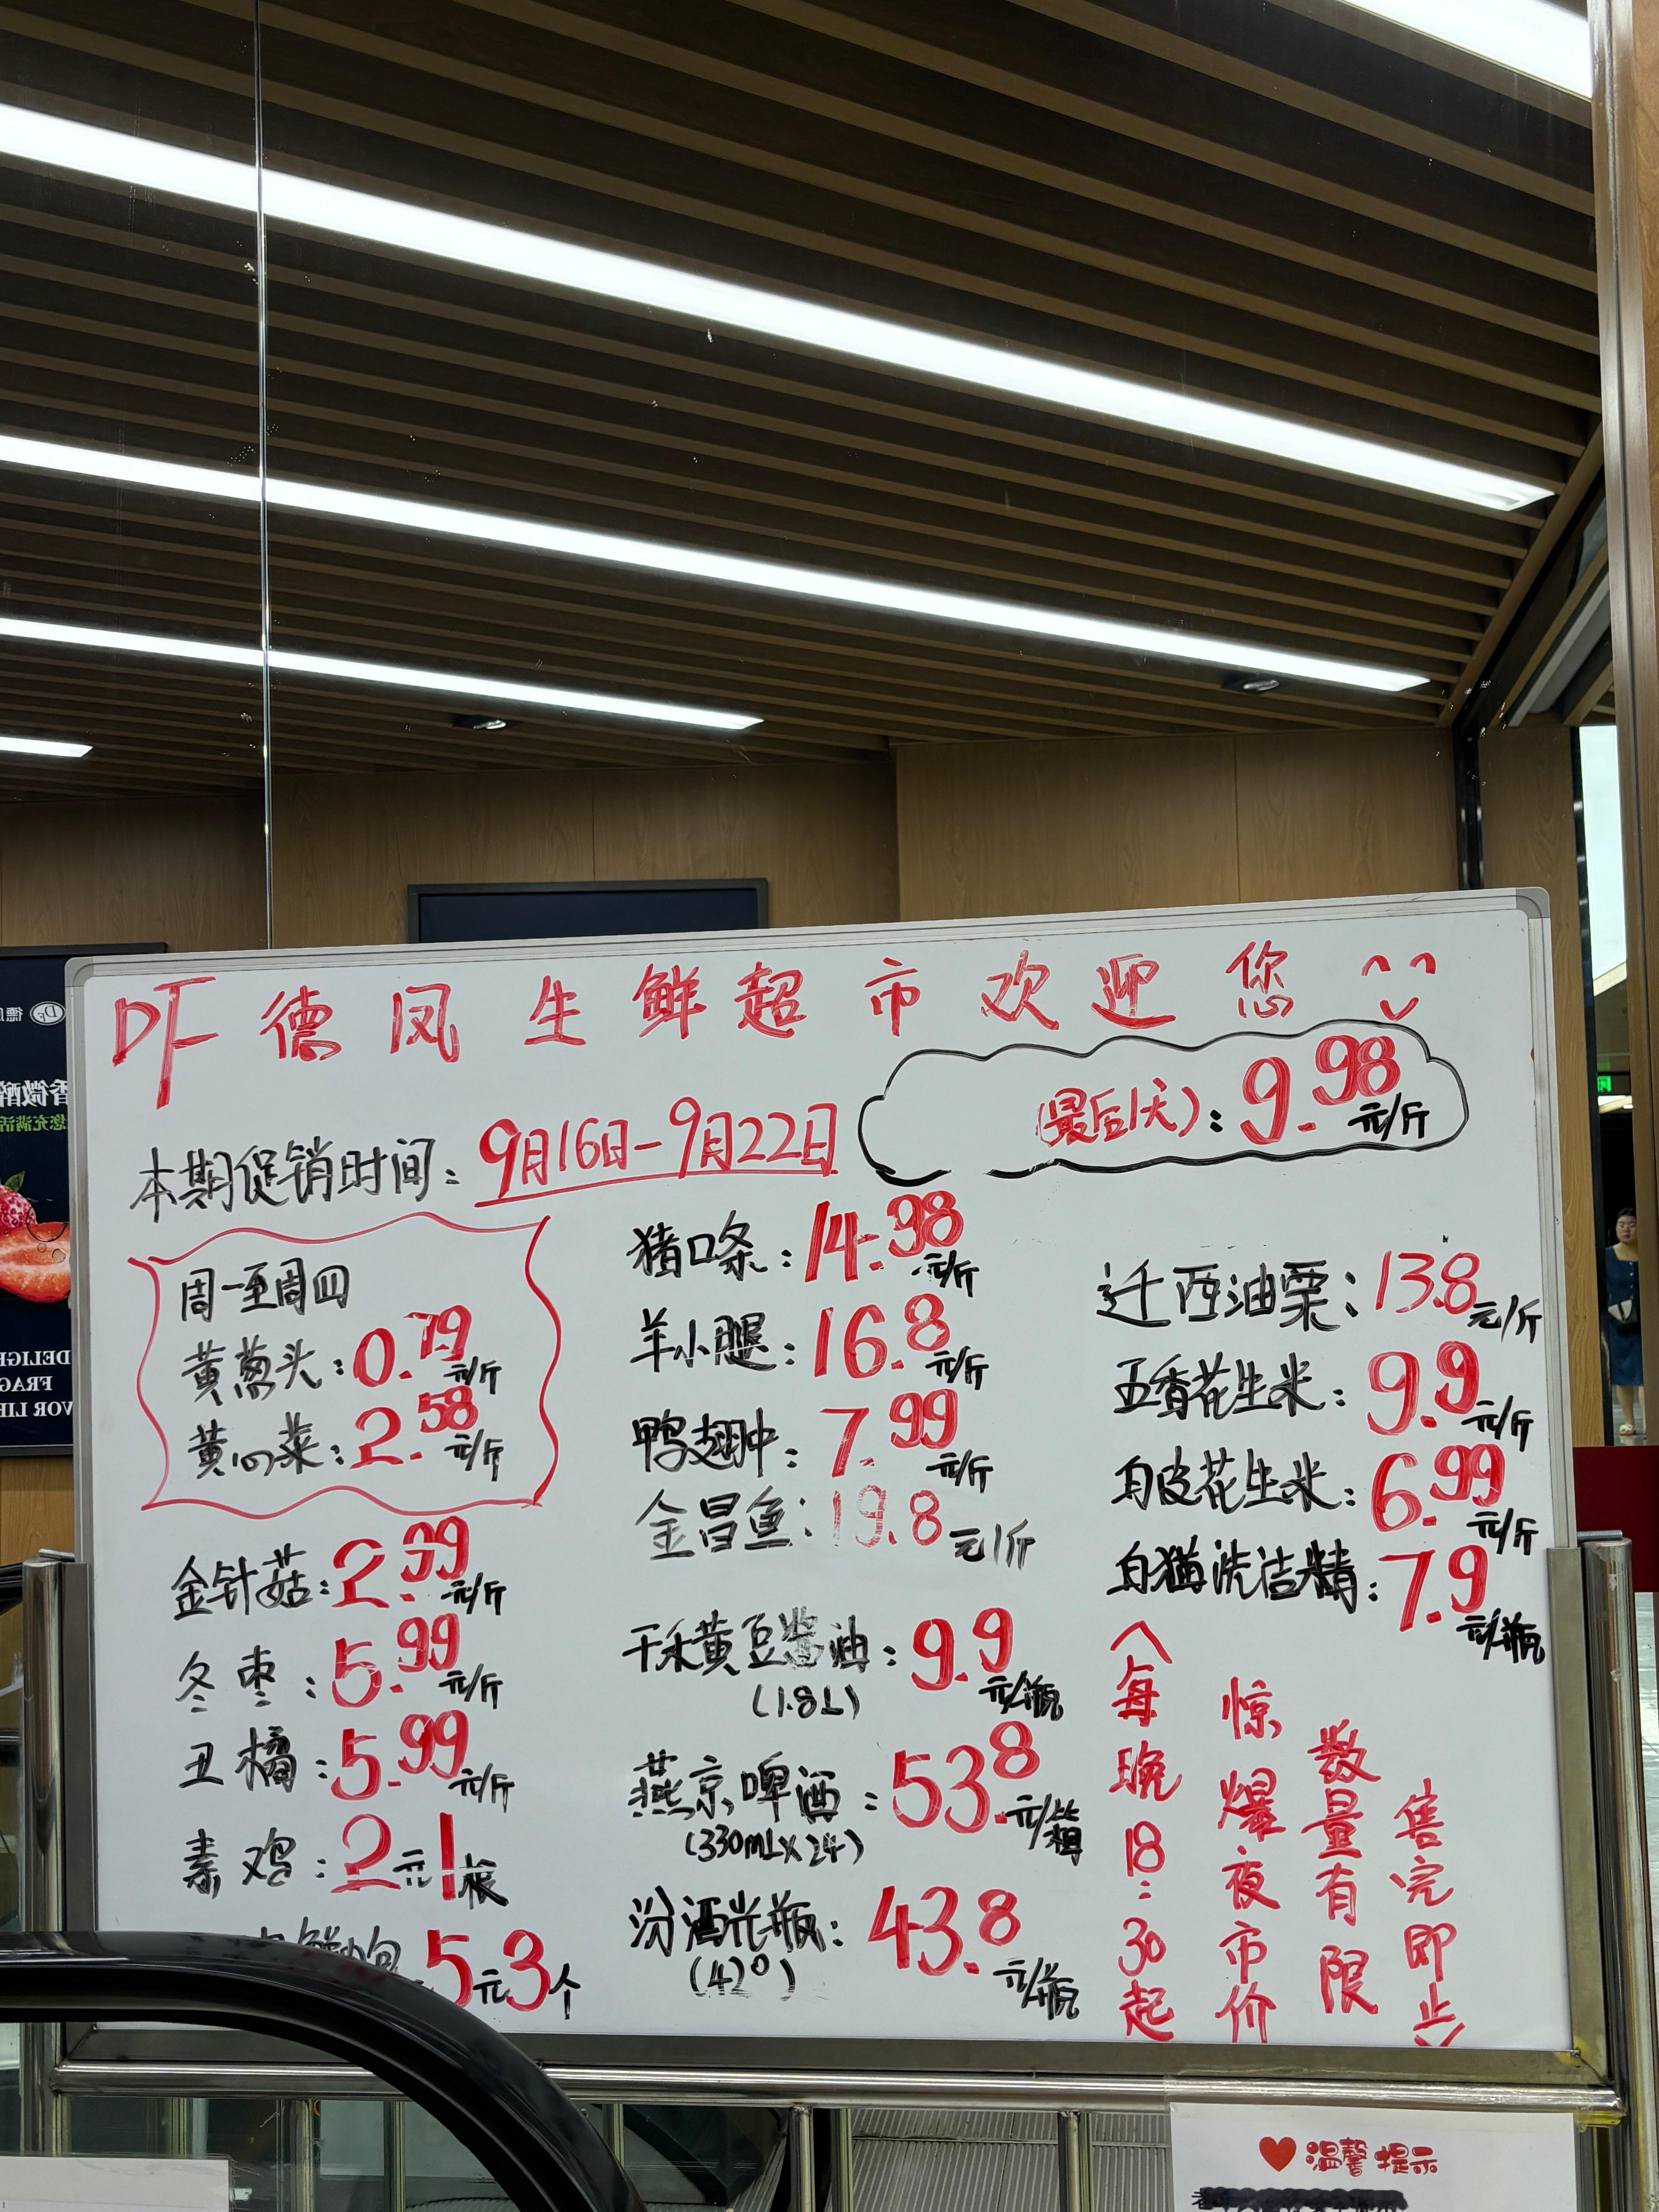 DF 德凤生鲜超市欢迎您
本期促销时间：9月16日-9月22日
(最后1天)：9.98元/斤
周一至周四
黄葱头：0.79元/斤
黄心菜：2.58元/斤
金针菇：2.99元/斤
冬枣：5.99元/斤
丑橘：5.99元/斤
素鸡：2元1根
5元3个
猪口条：14.98元/斤
羊小腿：16.8元/斤
鸭翅中：7.99元/斤
金昌鱼：19.8元/斤
千禾黄豆酱油：9.9元/瓶
(1.8L)
燕京啤酒：53.8元/箱
(330mL×24)
汾酒光瓶：43.8元/瓶
(42°)
迁西油栗：13.8元/斤
五香花生米：9.9元/斤
白皮花生米：6.99元/斤
白猫洗洁精：7.9元/瓶
<每晚18:30起
惊爆夜市价
数量有限
售完即止>
温馨提示
DELIG
FRAG
VOR LI